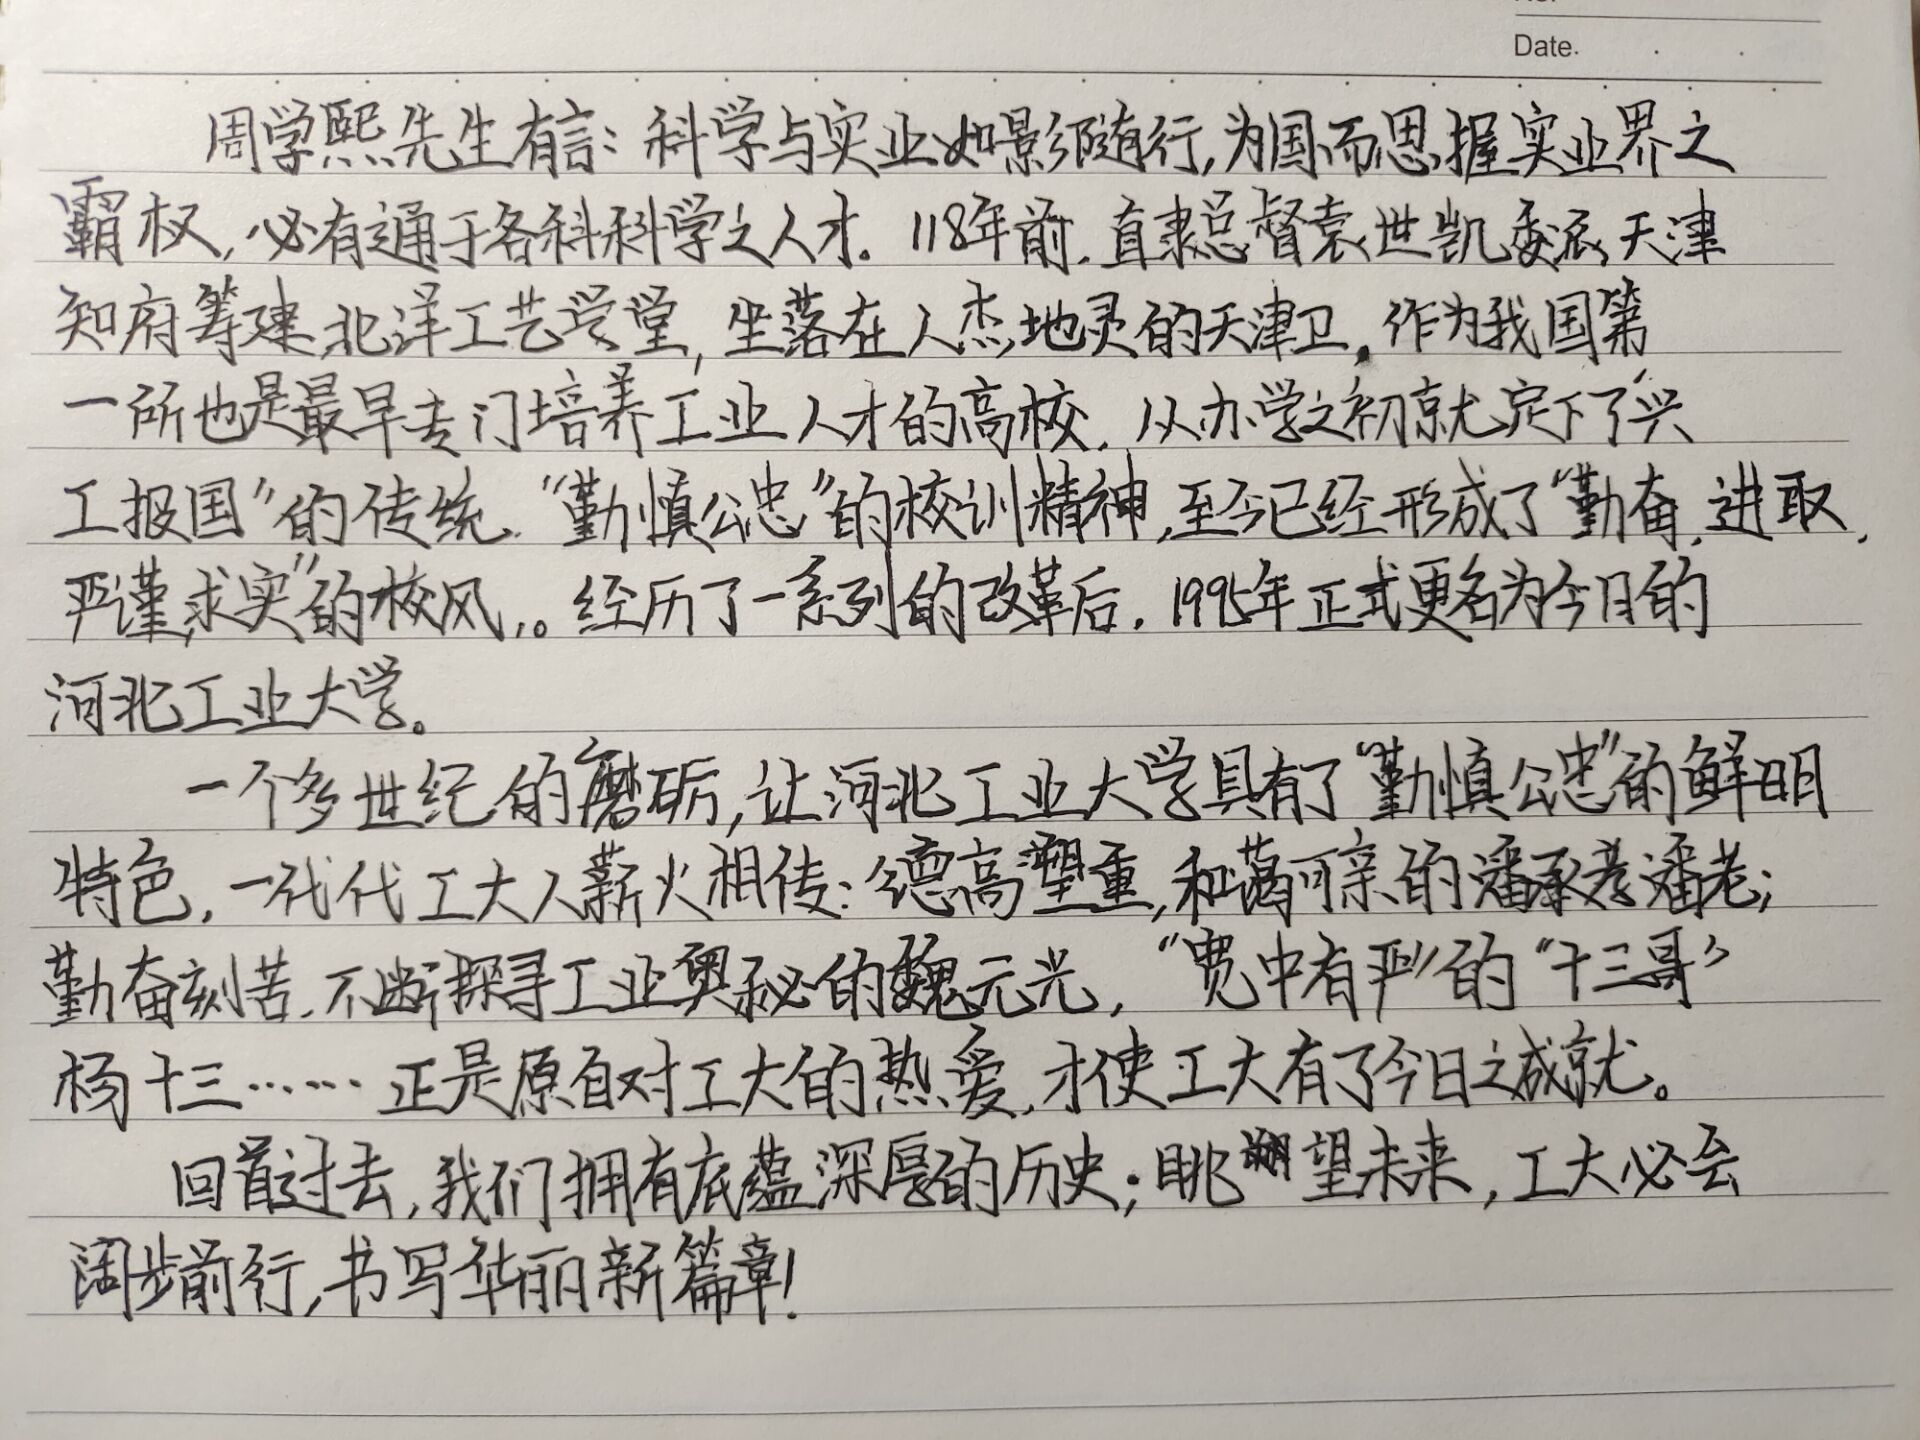 Date.
周学熙先生有言：科学与实业如影随行，为国而思，握实业界之
霸权，必有通于各科科学之人才。118年前，直隶总督袁世凯委派天津
知府筹建北洋工艺学堂，坐落在人杰地灵的天津卫，作为我国第
一所也是最早专门培养工业人才的高校，从办学之初就定下了“兴
工报国”的传统，“勤慎公忠”的校训精神，至今已经形成了“勤奋，进取，
严谨，求实”的校风，。经历了一系列的改革后，1995年正式更名为今日的
河北工业大学。
一个多世纪的磨砺，让河北工业大学具有了“勤慎公忠”的鲜明
特色，一代代工大人薪火相传：德高望重，和蔼可亲的潘承孝潘老；
勤奋刻苦，不断探寻工业奥秘的魏元光，“宽中有严”的“十三哥”
杨十三……正是原自对工大的热爱，才使工大有了今日之成就。
回首过去，我们拥有底蕴深厚的历史；眺望未来，工大必会
阔步前行，书写华丽新篇章！